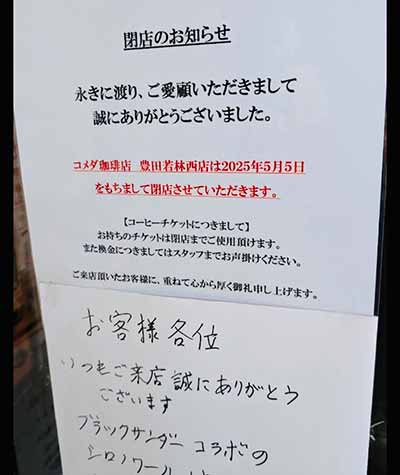 閉店のお知らせ
永きに渡り、ご愛顧いただきまして
誠にありがとうございました。
コメダ珈琲店 豊田若林西店は2025年5月5日
をもちまして閉店させていただきます。
【コーヒーチケットにつきまして】
お持ちのチケットは閉店までご使用頂けます。
また換金につきましてはスタッフまでお声掛けください。
ご来店頂いたお客様に、重ねて心から厚く御礼申し上げます。
お客様各位
いつもご来店誠にありがとう
ございます
ブラックサンダー コラボの
シロノワール